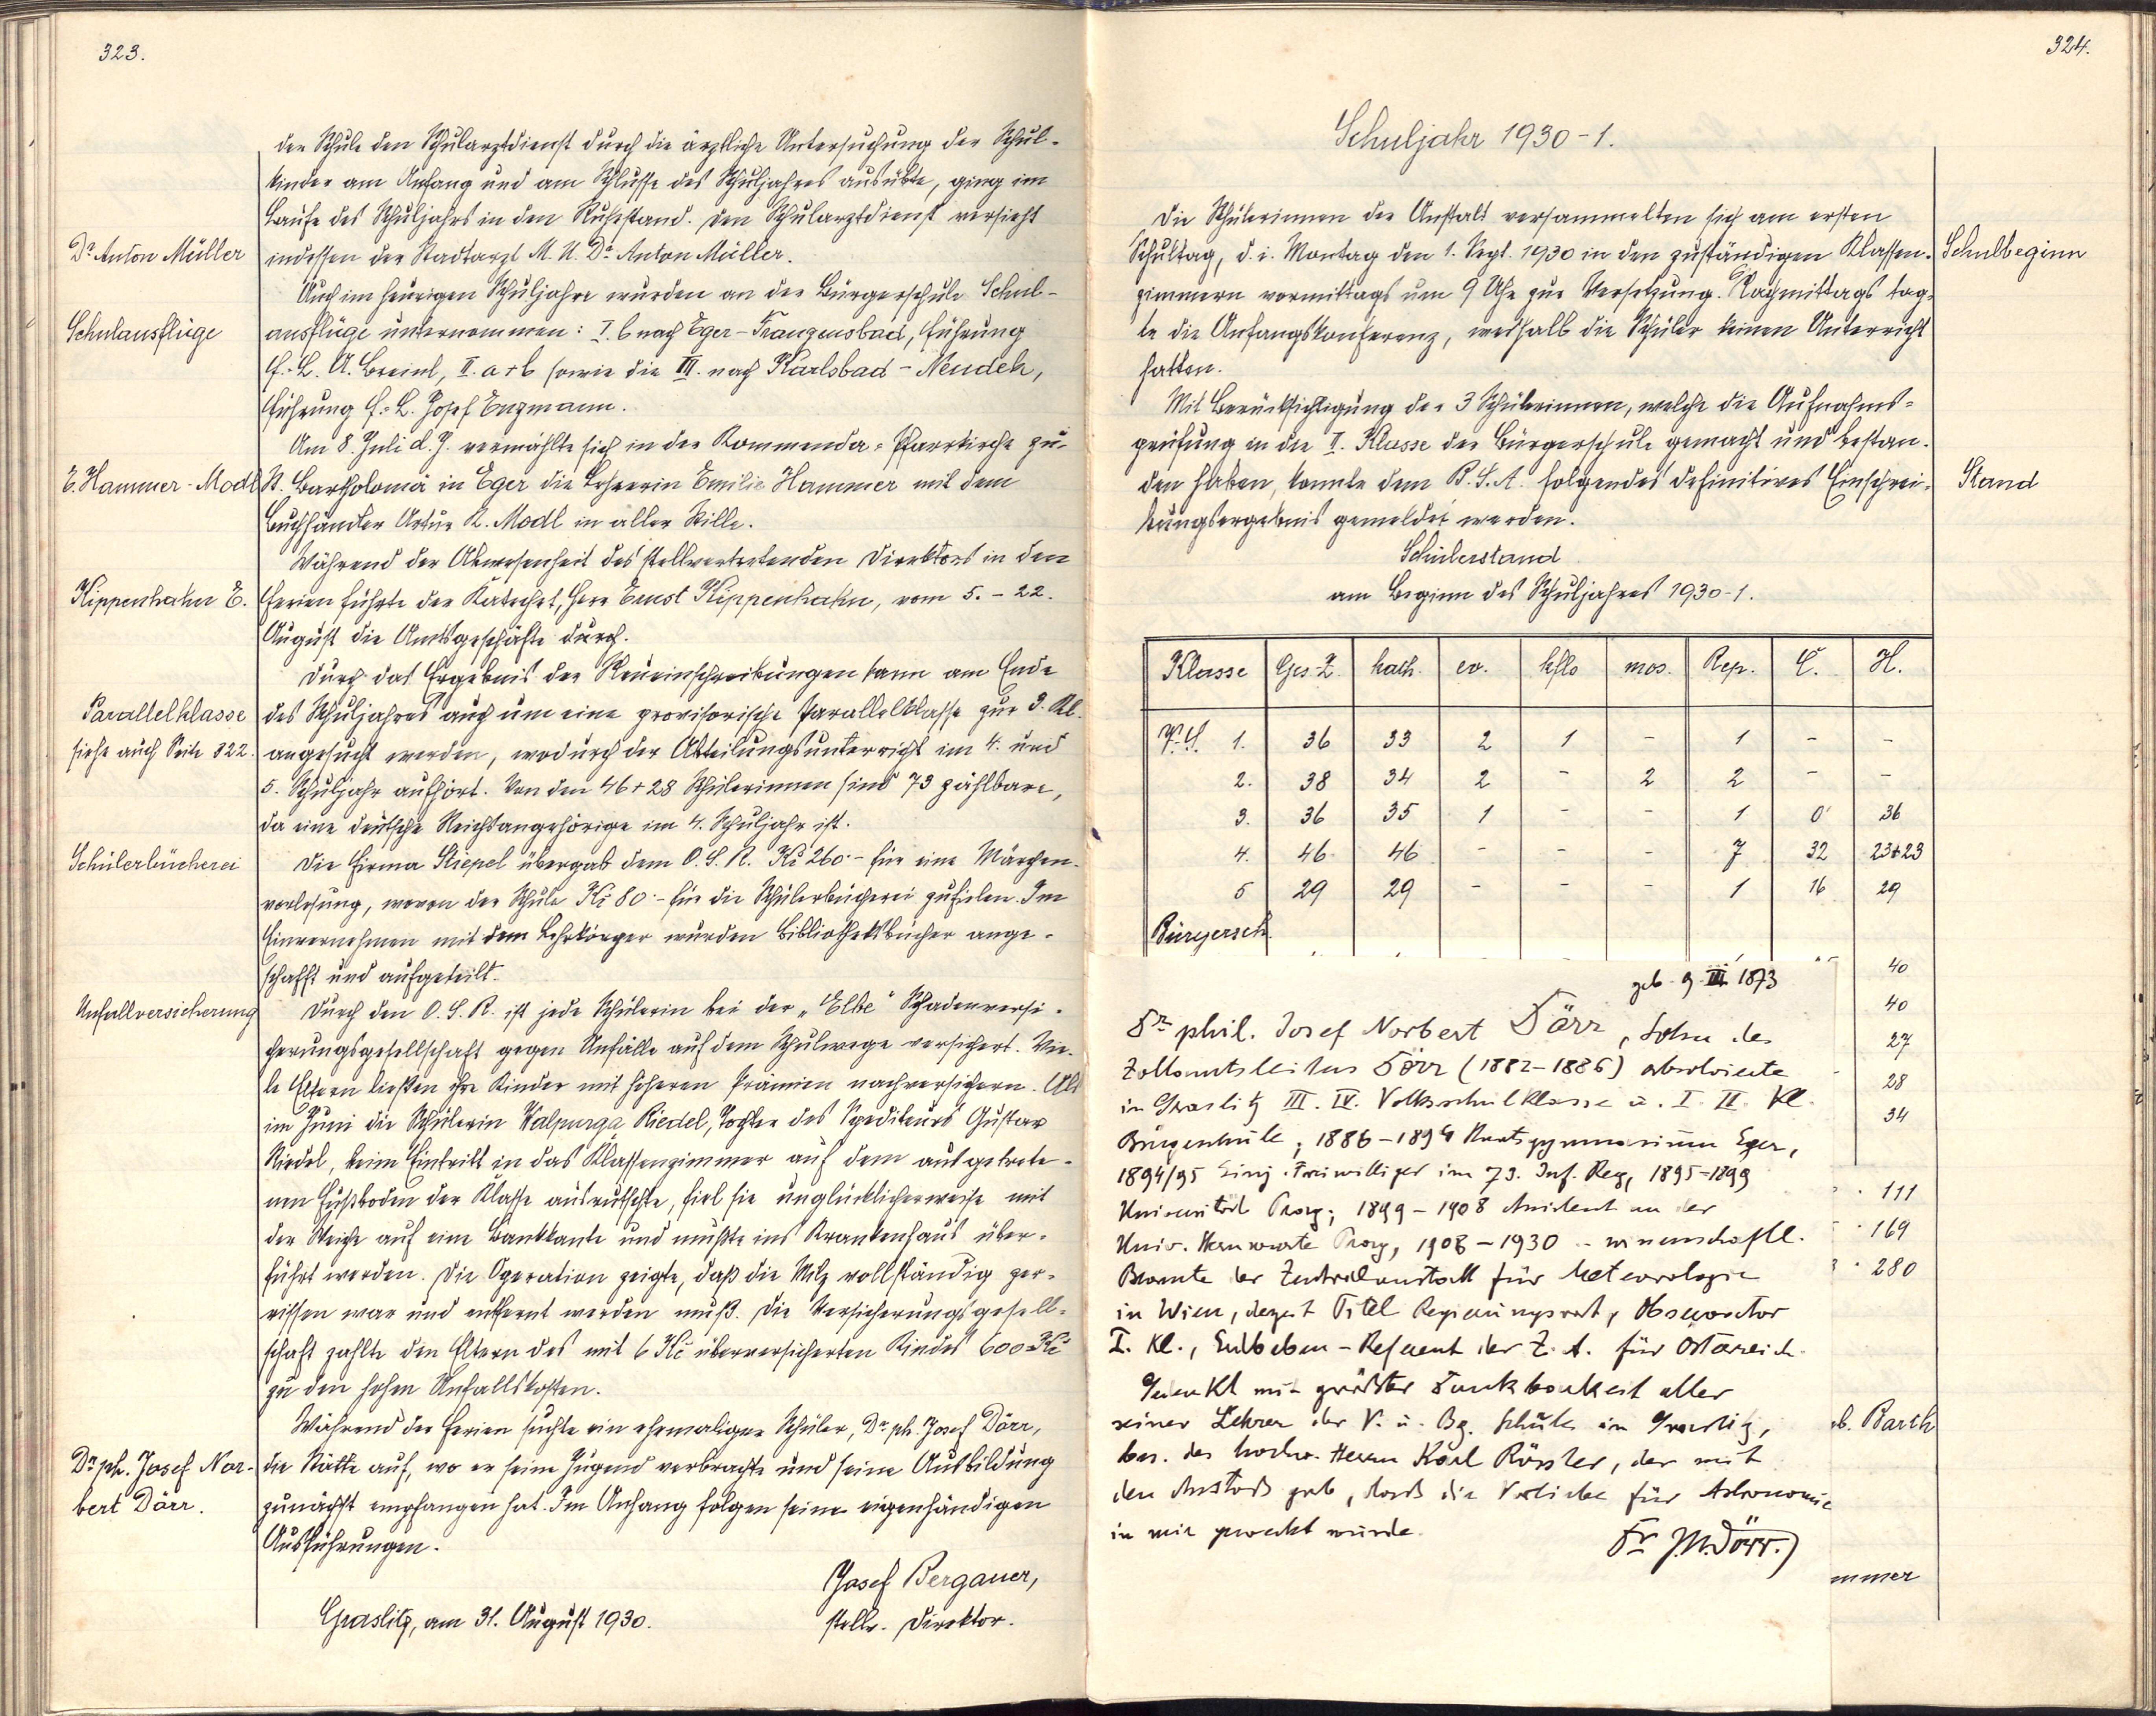 323.
der Schule den Schularztdienst durch die ärztliche Untersuchung der Schul-
kinder am Anfang und am Schlusse des Schuljahres ausübte, ging im
Laufe des Schuljahrs in den Ruhestand. Den Schularztdienst versieht
Dr Anton Müller
indessen der Stadtarzt M. U. Dr Anton Müller.
Auch im heurigen Schuljahre wurden an der Bürgerschule Schul-
Schulausflüge
ausflüge unternommen: I. b nach Eger-Franzensbad, Führung
f.-L. A. Breinl, II. a + b sowie die III. nach Karlsbad-Neudek,
Führung f.-L. Josef Enzmann.
Am 8. Juli d. J. vermählte sich in der Kommenda-Pfarrkirche zu
E. Hammer-Modl
St. Bartholomä in Eger die Lehrerin Emilie Hammer mit dem
Buchhändler Artur K. Modl in aller Stille.
Während der Abwesenheit des stellvertretenden Direktors in den
Kippenhahn E.
Ferien führte der Katechet, Herr Ernst Kippenhahn, vom 5. - 22.
August die Amtsgeschäfte durch.
Durch das Ergebnis der Neueinschreibungen kann am Ende
Parallelklasse
des Schuljahres auch um eine provisorische Parallelklasse zur 3. Kl.
siehe auch Seite 322.
angesucht werden, wodurch der Abteilungsunterricht im 4. und
5. Schuljahr aufhört. Von den 46 + 28 Schülerinnen sind 73 zählbare,
da eine deutsche Reichsangehörige im 4. Schuljahr ist.
Schülerbücherei
Die Firma Stiepel übergab dem O. S. R. Kč 260.- für eine Märchen-
vorlesung, wovon der Schule Kč 80.- für die Schülerbücherei zufielen. Im
Einvernehmen mit dem Lehrkörper wurden Bibliotheksbücher ange-
schafft und aufgeteilt.
Unfallversicherung
Durch den O. S. R. ist jede Schülerin bei der „Elbe" Schadenversi-
cherungsgesellschaft gegen Unfälle auf dem Schulwege versichert. Vie-
le Eltern ließen ihre Kinder mit höheren Prämien nachversichern. Als
im Juni die Schülerin Walpurga Riedel, Tochter des Spediteurs Gustav
Riedel, beim Eintritt in das Klassenzimmer auf dem ausgetrete-
nen Fußboden der Klasse ausrutschte, fiel sie unglücklicherweise mit
der Weiche auf eine Bankkante und mußte ins Krankenhaus über-
führt werden. Die Operation zeigte, daß die Milz vollständig zer-
rissen war und entfernt werden muß. Die Versicherungsgesell-
schaft zahlte den Eltern des mit 6 Kč überversicherten Kindes 600 Kč
zu den hohen Unfallskosten.
Während der Ferien suchte ein ehemaliger Schüler, Dr ph. Josef Dörr,
Dr ph. Josef Nor-
die Stätte auf, wo er seine Jugend verbrachte und seine Ausbildung
bert Dörr.
zunächst empfangen hat. Im Anhang folgen seine eigenhändigen
Ausführungen.
Josef Bergauer,
Graslitz, am 31. August 1930.
stellv. Direktor.
324.
Schuljahr 1930-1.
Die Schülerinnen der Anstalt versammelten sich am ersten
Schultag, d. i. Montag den 1. Sept. 1930 in den zuständigen Klassen-
Schulbeginn
zimmern vormittags um 9 Uhr zur Versetzung. Nachmittags tag-
te die Anfangskonferenz, weshalb die Schüler keinen Unterricht
hatten.
Mit Berücksichtigung der 3 Schülerinnen, welche die Aufnahms-
prüfung in die II. Klasse der Bürgerschule gemacht und bestan-
den haben, konnte dem B. S. A. folgendes definitives Einschrei-
Stand
bungsergebnis gemeldet werden.
Schülerstand
am Beginn des Schuljahres 1930-1.
Klasse Ges-Z. kath. ev. kflo mos. Rep. Č. H.
V.S. 1. 36 33 2 1 - 1 - -
2. 38 34 2 - 2 2 - -
3. 36 35 1 - - 1 0 36
4. 46 46 - - - 7 32 23+23
5 29 29 - - - 1 16 29
Bürgersch.
40
40
27
28
34
111
169
280
b. Barth
mmer
geb. 9. III. 1873
Dr phil. Josef Norbert Dörr, Sohn des
Zollamtsleiters Dörr (1882-1886) absolvierte
in Graslitz III. IV. Volksschulklasse u. I. II. Kl.
Bürgerschule; 1886-1894 Staatsgymnasium Eger,
1894/95 Einj. Freiwilliger im 73. Inf. Reg, 1895-1899
Universität Prag; 1899-1908 Assistent an der
Univ. Sternwarte Prag, 1908-1930 wissenschaftl.
Beamte der Zentralanstalt für Meteorologie
in Wien, derzeit Titel Regierungsrat, Observator
I. Kl., Erdbeben-Referent der Z. A. für Österreich.
Gedenkt mit größter Dankbarkeit aller
seiner Lehrer der V. u. Bg. Schule in Graslitz,
bes. des hochw. Herrn Karl Rössler, der mit
den Anstoß gab, dass die Vorliebe für Astronomie
in mir geweckt wurde.
Dr J.N.Dörr.